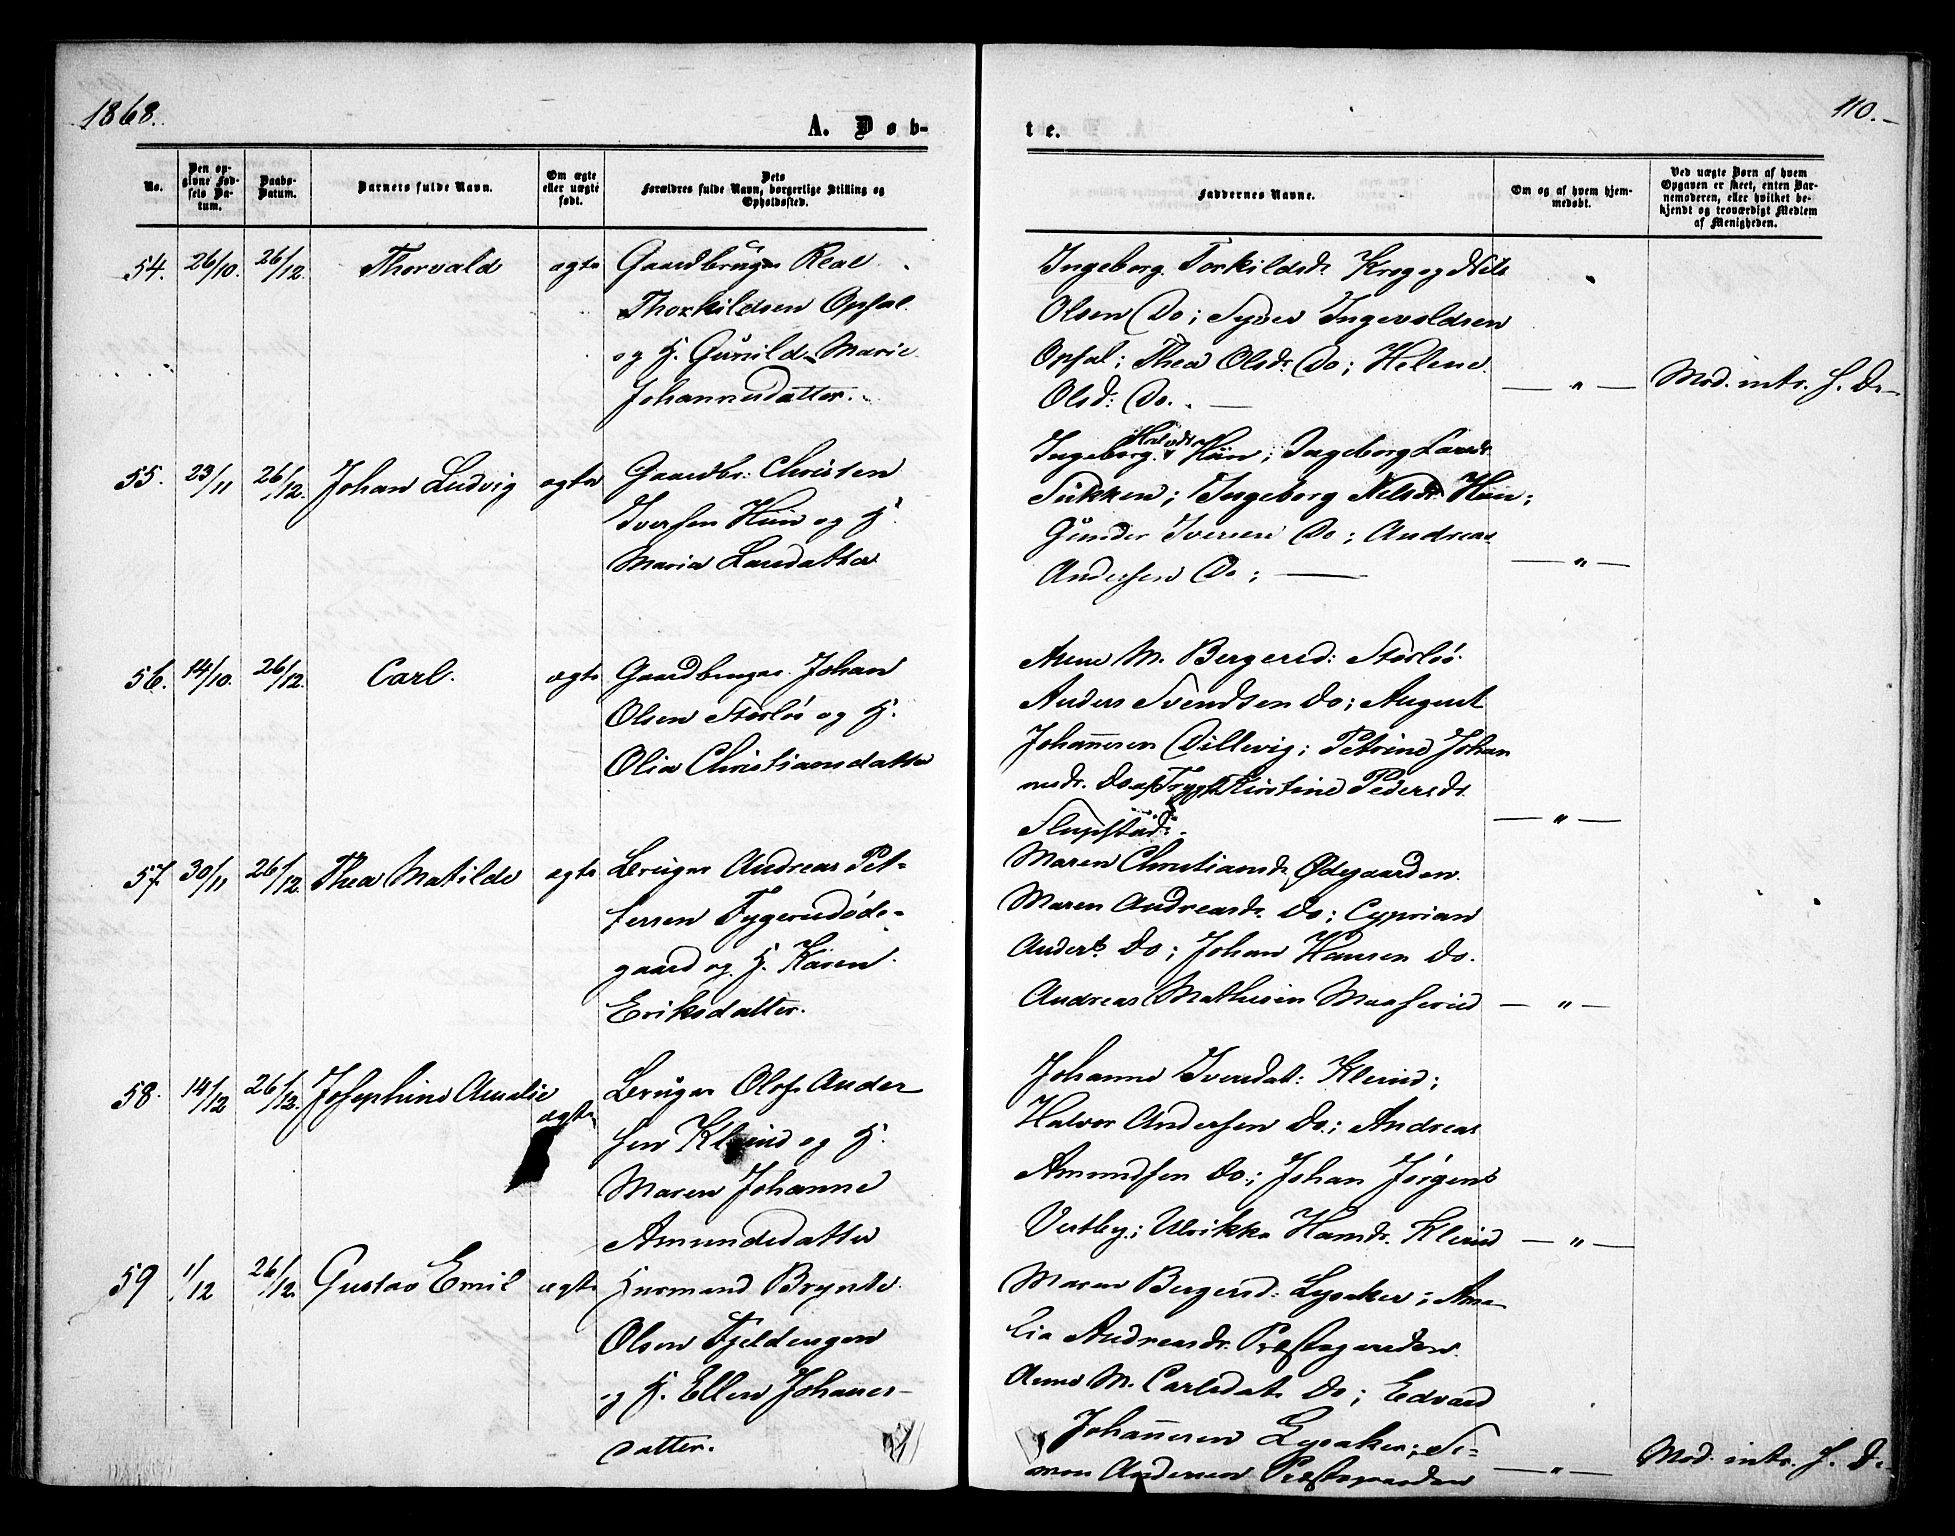 1868.
110.-
A. Døb-
te.
No.
Den op-
givne Fød-
sels Da-
tum.
Daabs-
Datum.
Barnets fulde Navn.
Om ægte
eller uægte
født.
Dets
Forældres fulde Navn, borgerlige Stilling og
Opholdssted.
Faddernes Navne.
Om og af hvem hjem-
medøbt.
Ved uægte Børn af hvem
Opgaven er skeet, enten Bar-
nemoderen, eller hvilket be-
kjendt og troværdigt Medlem
af Menigheden.
54. 26/10. 26/12. Thorvald ægte
Gaardbruger
Thorkildsen Opsal.
og H. Gunild Marie
Johannesdatter.
Ingeborg Torkildsdr. Krog og Nils
Olsen Do; Syver Ingevoldsen
Opsal; Thea Olsdr. Do; Helene
Olsd: Do. —
— " — Mod. intr. f. D.
55. 23/11 26/12. Johan Ludvig ægte
Gaardbr: Christen
Iversen Hun og H.
Maria Larsdatter
Ingeborg Hun; Ingeborg Larsdr.
Sukken; Ingeborg Nilsdr. Hun;
Gunder Iversen Do; Andreas
Andersen Do; —
— " —
56. 14/10. 26/12. Carl. ægte
Gaardbruger Johan
Olsen Storløs og H.
Olia Christiansdatter
Anne M. Bergersd: Storløs.
Anders Svendsen Do; August
Johannesen Dillevig; Petrine Johan
nesdr. Do Kirstine Pedersdr.
Slupstad.
— " —
57. 30/11 26/12. Thea Matilde ægte
Bruger Andreas Pet-
tersen Tygerudøde-
gaard og H. Karen
Eriksdatter.
Maren Christiansdr. Ødegaarden.
Maren Andreasdr. Do; Cyprian
Anders. Do; Johan Hansen Do.
Andreas Mathisen
— " —
58. 14/12 26/12. Josephine Amalie ægte
Bruger Olof Ander
sen Klerud og H.
Maren Johanne
Amundsdatter
Johanne Iversdat: Klerud;
Halvor Andersen Do; Andreas
Amundsen Do; Johan Jørgens
Vestby; Ulrikke Hansdr. Klerud
— " —
59 11/12 26/12. Gustav Emil ægte
Husmand Brynte
Olsen Fjeldengen
og H. Ellen Johanes-
datter.
Maren Bergersd: Lysaker; Ama-
lia Andreasdr. Præstegaarden.
Anne M. Carlsdat. Do; Edvard
Johannesen Lysaker; Si-
mon Andersen Præstegaarden
— " — Mod. intr. f. D.